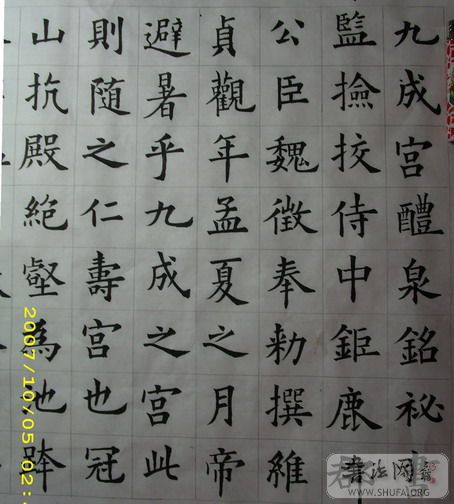 九成宮醴泉銘祕
監撿挍侍中鉅鹿
公臣魏徵奉勑撰維
貞觀年孟夏之月帝
避暑乎九成之宮此
則随之仁壽宮也冠
山抗殿絶壑為池跨
2007/10/05 02:
書法网
WWW.SHUFA.ORG